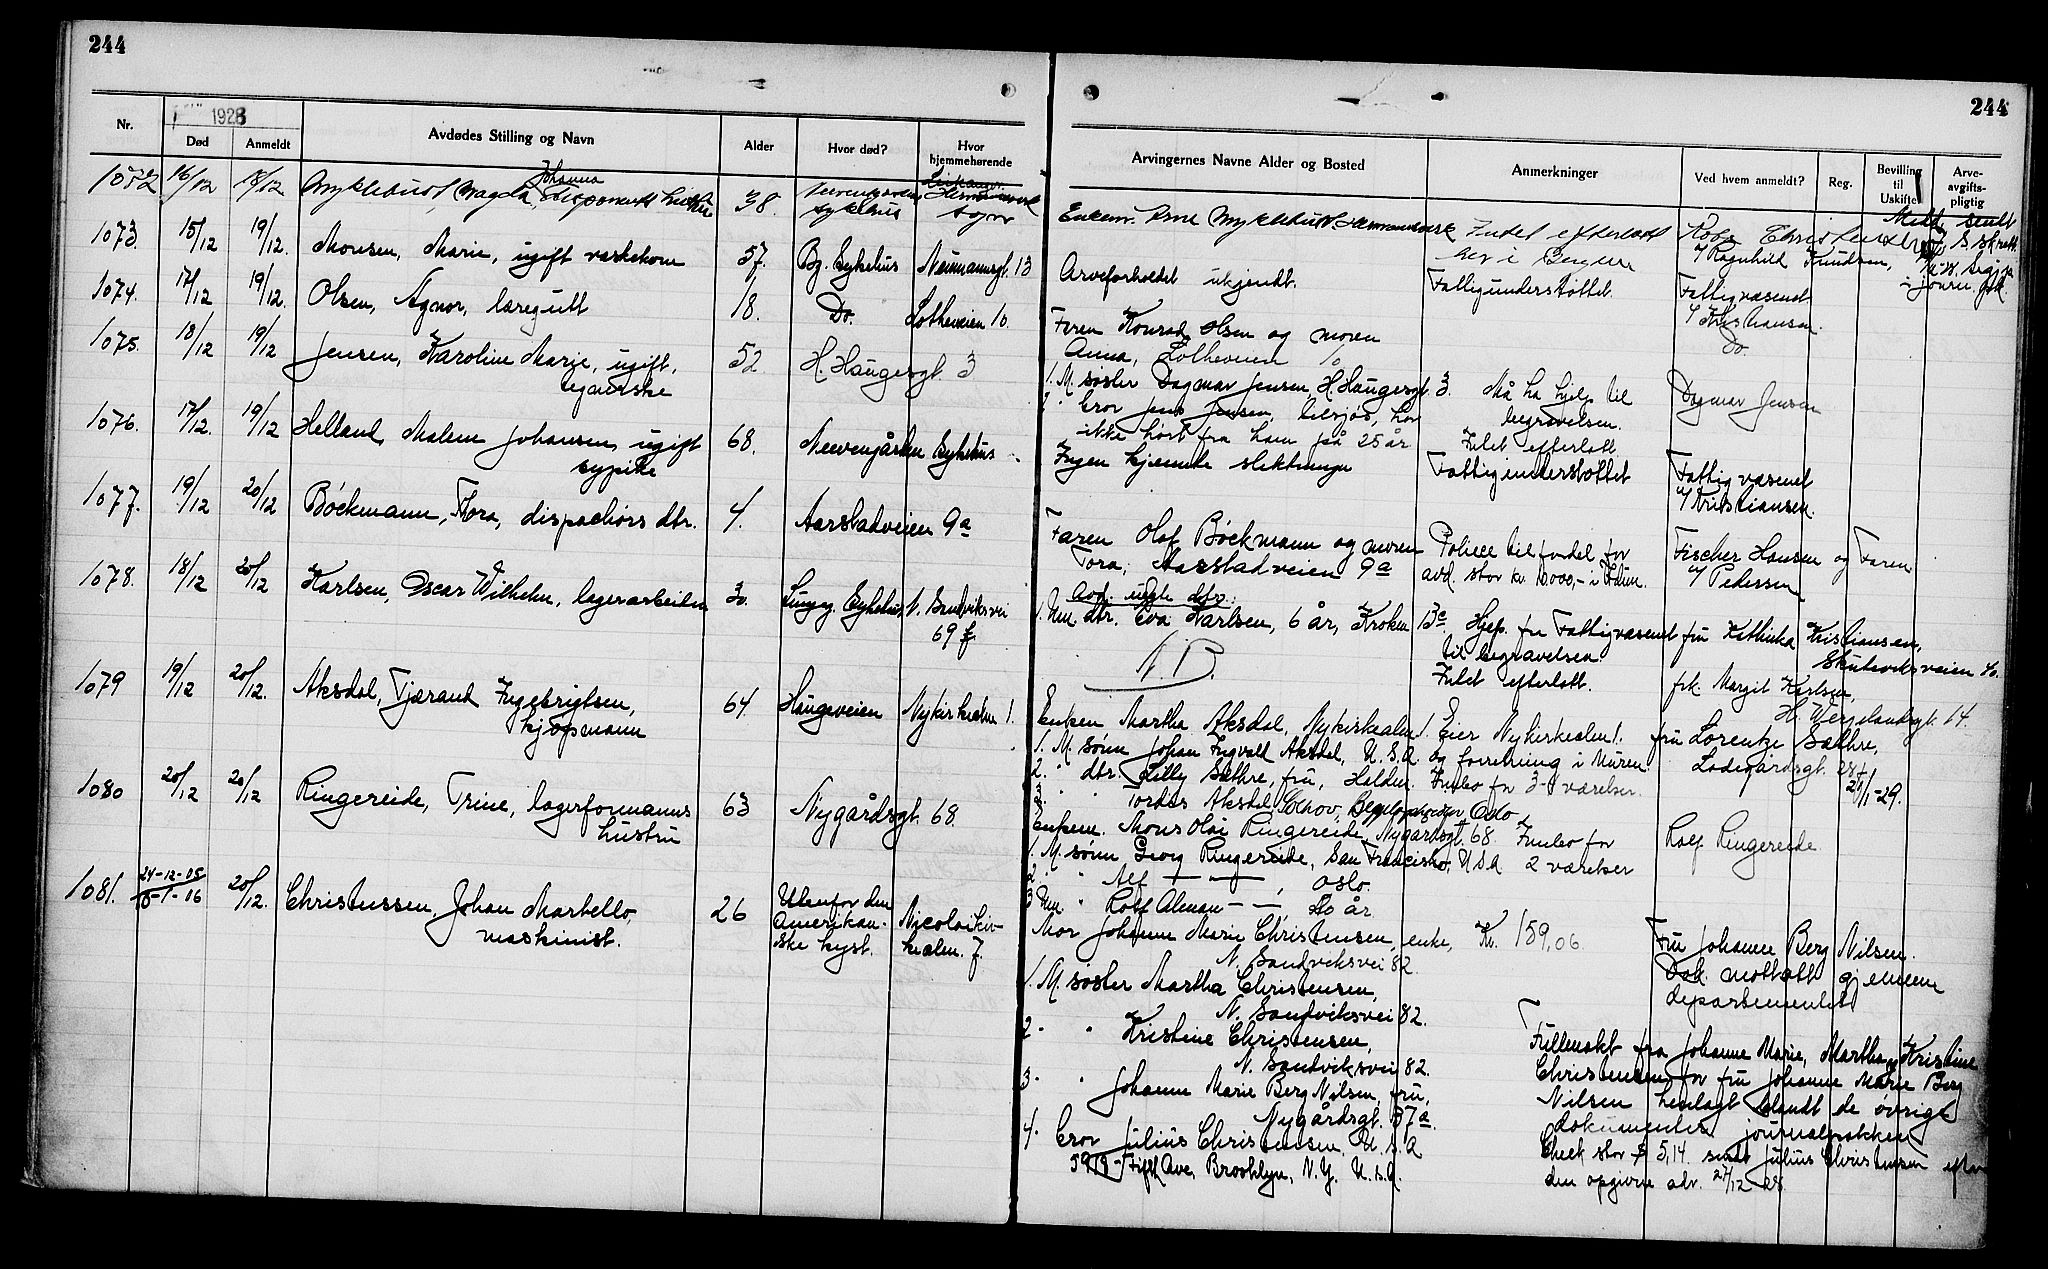 244
244
Nr.
1928
Død
Anmeldt
Avdødes Stilling og Navn
Alder
Hvor død?
Hvor hjemmehørende
Arvingernes Navne Alder og Bosted
Anmerkninger
Ved hvem anmeldt?
Reg.
Bevilling til Uskifte
Arveavgiftspligtig
1072 16/12 18/12 Myklebust, Magda Johanna, disponents hustru 38. Neevengaarden sykehus
Sogn
Enkem. Arne Myklebust
Intet efterlatt
her i Bergen
1073. 15/12 19/12. Monsen, Marie, ugift verkekone 57. Bg. Sykehus Neumannsgt. 13
Arveforholdet ukjendt. Fattigunderstøttet. Fattigvæsenet
v/ Ragnhild Knudsen,
1074. 17/12 19/12. Olsen, Agnor, læregutt 18. Do. Lotheveien 10.
Faren Konrad Olsen og moren
Anna, Lotheveien 10
v/ Kristiansen.
Do.
1075. 18/12 19/12 Jensen, Karoline Marie, ugift, 52 H. Haugesgt. 3
syerske
1. M. søster Dagmar Jensen, H. Haugesgt. 3. Må ha hjelp til
begravelsen.
Dagmar Jensen
bror Jens Jensen, tilsjøs, har
ikke hørt fra ham på 25 år
Intet efterlatt.
1076. 17/12. 19/12 Helland, Malene Johansen, ugift 68. Neevengården Sykehus
sypike
Ingen kjendte slektninger Fattigunderstøttet Fattigvæsenet
v/ Kristiansen.
1077. 19/12 20/12 Bøckmann, Thora, dispachørs dtr. 4. Aarstadveien 9a
Faren Olaf Bøckmann og moren
Tora, Aarstadveien 9a
Police til fordel for
avd. stor kr. 10000,- i Idun.
Fischer Hansen og Faren
v/ Pedersen
1078. 18/12 20/12 Karlsen, Oscar Wilhelm, lagerarbeider 30. Lungeg. Sykehus N. Sandviksvei
69 f.
Avd. uegte dtr.:
1. Um. dtr. Eva Karlsen, 6 år, Kroken 13c Hjep. fra Fattigvæsenet
til begravelsen.
Intet efterlatt.
N.B.
fru Kathinka Kristiansen,
Skuteviksveien 40.
frk. Margit Karlsen,
H. Wergelandsgt. 14.
1079 19/12 20/12. Aksdal, Tjærand Ingebrigtsen, 64. Haugeveien Nykirkealm. 1.
kjøpmann
Enken Martha Aksdal, Nykirkealm. 1. Eier Nykirkealm 1.
og forretning i Muren
Innbo for 3 værelser.
1. M. sønn Johan Ingvald Aksdal, U.S.A.
2. " dtr. Lilly Sæthre, fru, Halden.
3. " " Tordis Aksdal
Oslo
fru Lorentze Sæthre,
Lodegårdsgt. 28
1080 20/12 20/12 Ringereide, Trine, lagerformanns 63 Nygårdsgt. 68.
hustru
Enkem. Mons Olai Ringereide, Nygårdsgt. 68 Innbo for
2 værelser
Rolf Ringereide.
1. M. sønn Georg Ringereide, San Francisko, U.S.A
2 " " Alf — " — , Oslo.
3 Um. " Rolf — " — 20 år
1081. 24-12-05 20/12. Christensen, Johan Martello, 26 Utenfor den
maskinist. Amerikanske kyst. Nicolaikirkealm. 7.
Mor Johanne Marie Christensen, enke, Kr. 159,06.
N. Sandviksvei 82.
Fru Johanne Berg Nilsen.
Dok. mottatt gjennem
departementet
1. M. søster Martha Christensen,
N. Sandviksvei 82.
2. " Kristine Christensen,
N. Sandviksvei 82.
3. " Johanne Marie Berg Nilsen, fru,
Nygårdsgt. 37a.
4. bror Julius Christensen, U.S.A
Ave, Brooklyn, N.Y. U.S.A.
Fullmakt fra Johanne Marie, Martha og Kristine
Christensen for fru Johanne Marie Berg
Nilsen henlagt blandt de øvrige
dokumenter
Check stor $ 5,14 sendt Julius Christensen efter
den opgivne adr. 27/12 28.